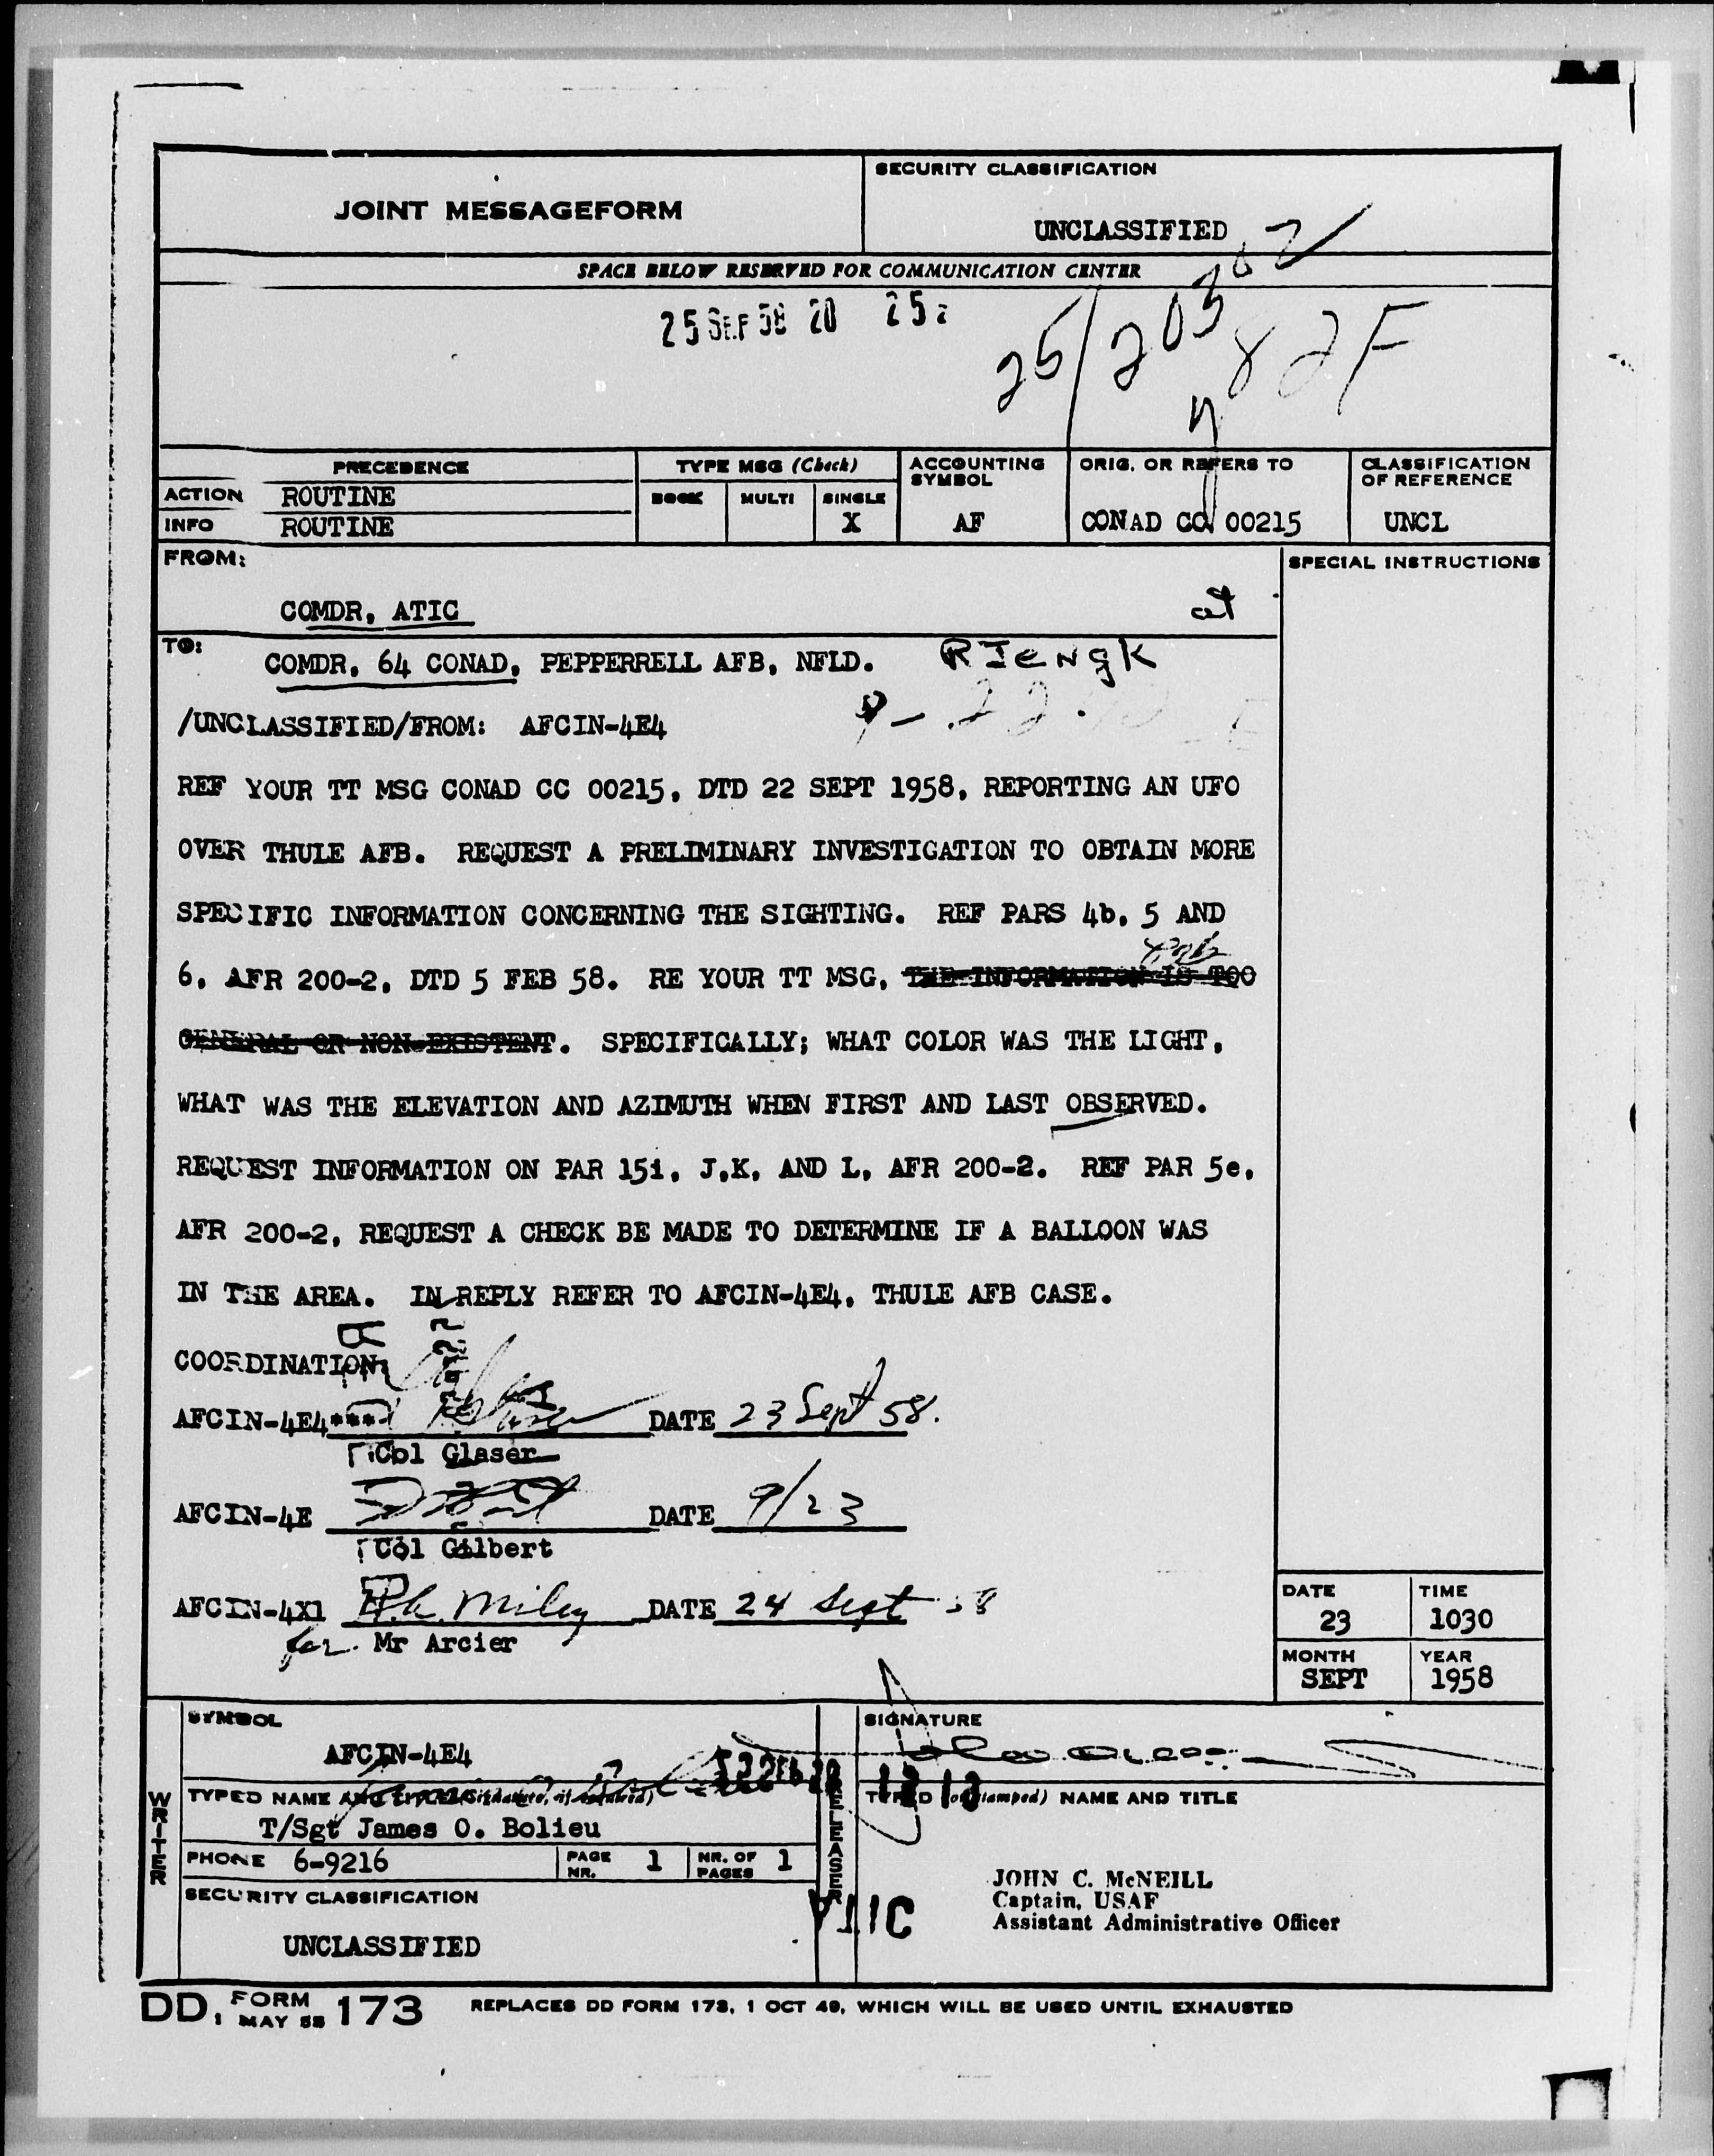 JOINT MESSAGEFORM
SECURITY CLASSIFICATION
UNCLASSIFIED
SPACE BELOW RESERVED FOR COMMUNICATION CENTER
25 SEP 58 20 25z
PRECEDENCE
TYPE MSG (Check)
ACCOUNTING SYMBOL
ORIG. OR REFERS TO
CLASSIFICATION OF REFERENCE
ACTION ROUTINE
BOOK MULTI SINGLE
INFO ROUTINE
X
AF
CONAD CC 00215
UNCL
FROM:
SPECIAL INSTRUCTIONS
COMDR, ATIC
TO:
COMDR, 64 CONAD, PEPPERRELL AFB, NFLD.
/UNCLASSIFIED/FROM: AFCIN-4E4
REF YOUR TT MSG CONAD CC 00215, DTD 22 SEPT 1958, REPORTING AN UFO
OVER THULE AFB. REQUEST A PRELIMINARY INVESTIGATION TO OBTAIN MORE
SPECIFIC INFORMATION CONCERNING THE SIGHTING. REF PARS 4b, 5 AND
6, AFR 200-2, DTD 5 FEB 58. RE YOUR TT MSG, THE INFORMATION IS TOO
GENERAL OR NON-EXISTENT. SPECIFICALLY; WHAT COLOR WAS THE LIGHT,
WHAT WAS THE ELEVATION AND AZIMUTH WHEN FIRST AND LAST OBSERVED.
REQUEST INFORMATION ON PAR 15i, J,K, AND L, AFR 200-2. REF PAR 5e,
AFR 200-2, REQUEST A CHECK BE MADE TO DETERMINE IF A BALLOON WAS
IN THE AREA. IN REPLY REFER TO AFCIN-4E4, THULE AFB CASE.
COORDINATION:
AFCIN-4E4 DATE 23 Sept 58.
Col Glaser
AFCIN-4E DATE 9/23
Col Gilbert
AFCIN-4X1 DATE 24 Sept 58
for Mr Arcier
DATE 23
TIME 1030
MONTH SEPT
YEAR 1958
WRITER
SYMBOL
AFCIN-4E4
TYPED NAME AND TITLE (Signature, if required)
T/Sgt James O. Bolieu
PHONE 6-9216
PAGE NR. 1
NR. OF PAGES 1
SECURITY CLASSIFICATION
UNCLASSIFIED
RELEASER
SIGNATURE
TYPED (or stamped) NAME AND TITLE
JOHN C. McNEILL
Captain, USAF
Assistant Administrative Officer
DD, FORM 1 MAY 55 173
REPLACES DD FORM 173, 1 OCT 49, WHICH WILL BE USED UNTIL EXHAUSTED